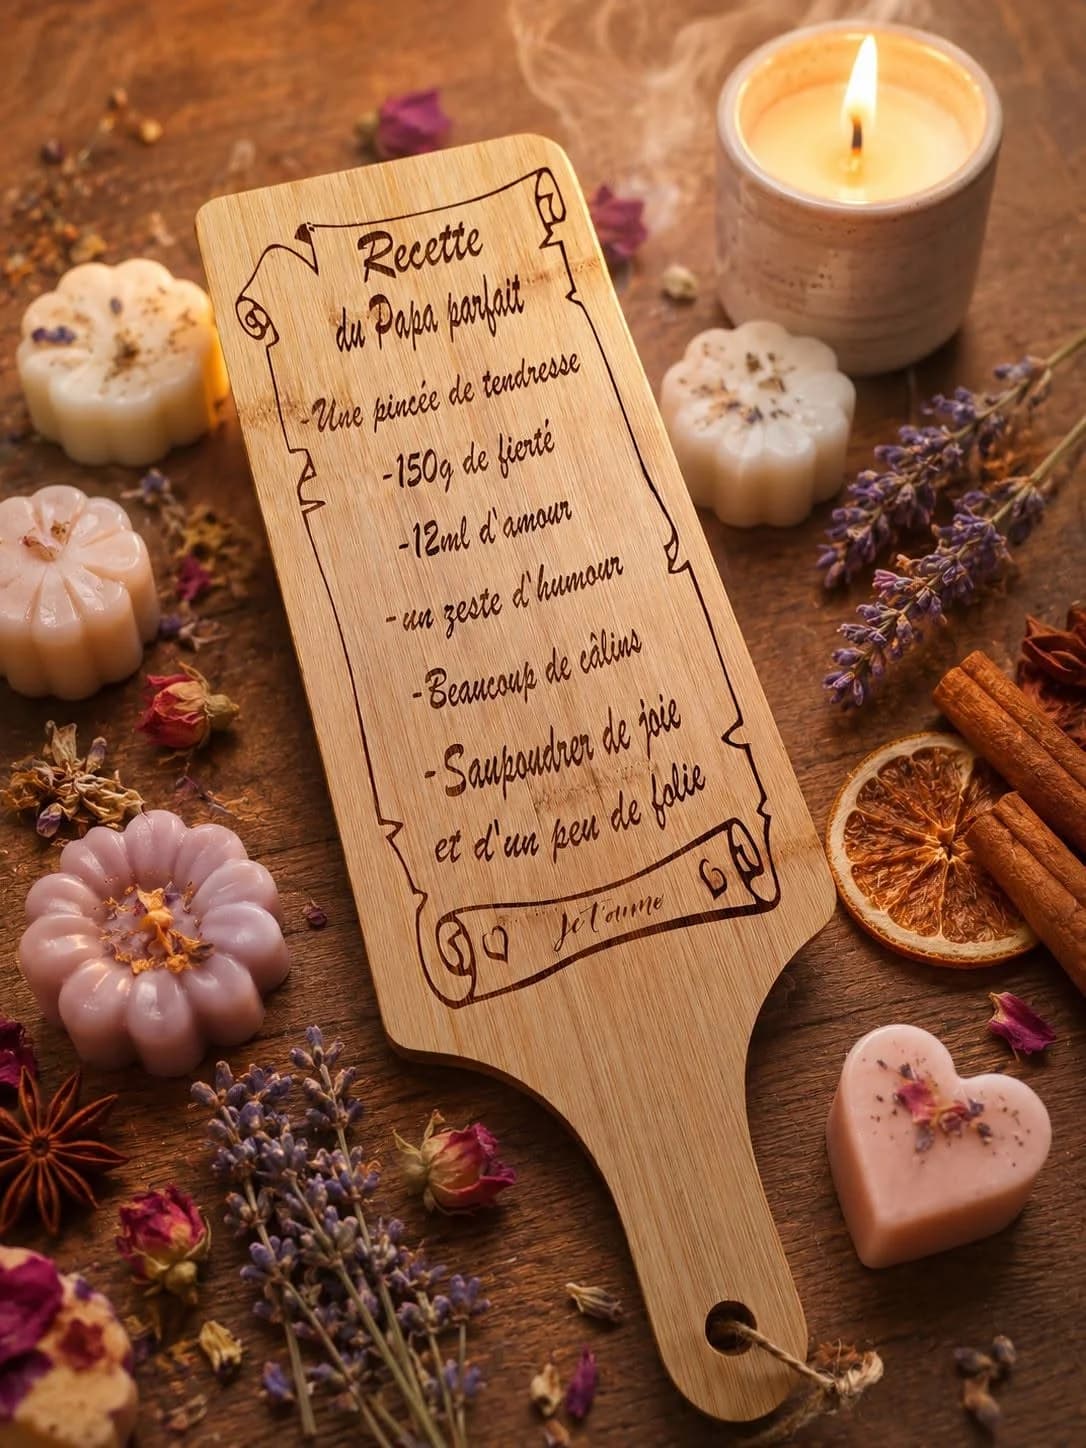 Recette
du Papa parfait
-Une pincée de tendresse
-150g de fierté
-12ml d'amour
-un zeste d'humour
-Beaucoup de câlins
-Saupoudrer de joie
et d'un peu de folie
Je t'aime